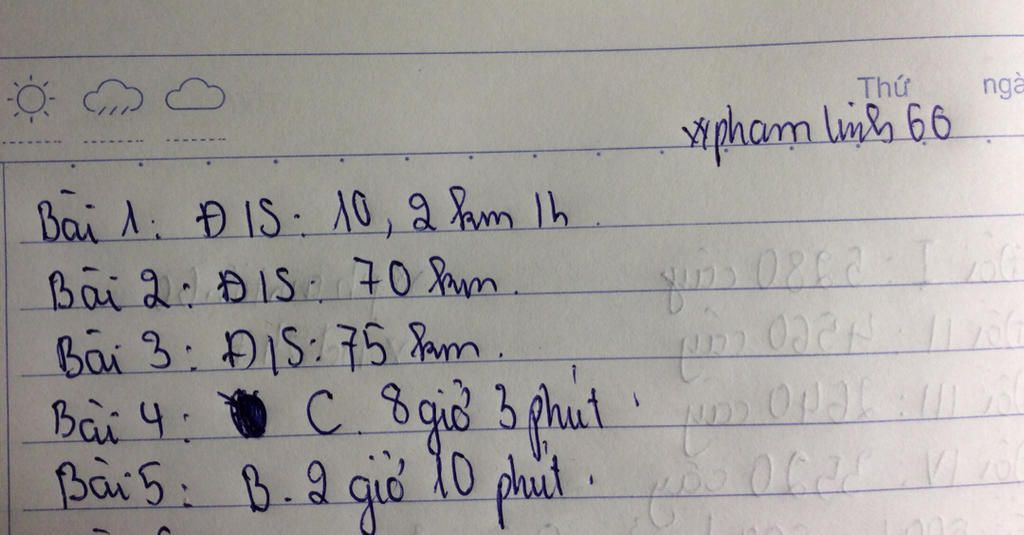 Thứ ngà
xpham linh 66
Bài 1: Đ/S: 10,2 km/h.
Bài 2: Đ/S: 70 km.
Bài 3: Đ/S: 75 km.
Bài 4: C. 8 giờ 3 phút.
Bài 5: B. 2 giờ 10 phút.